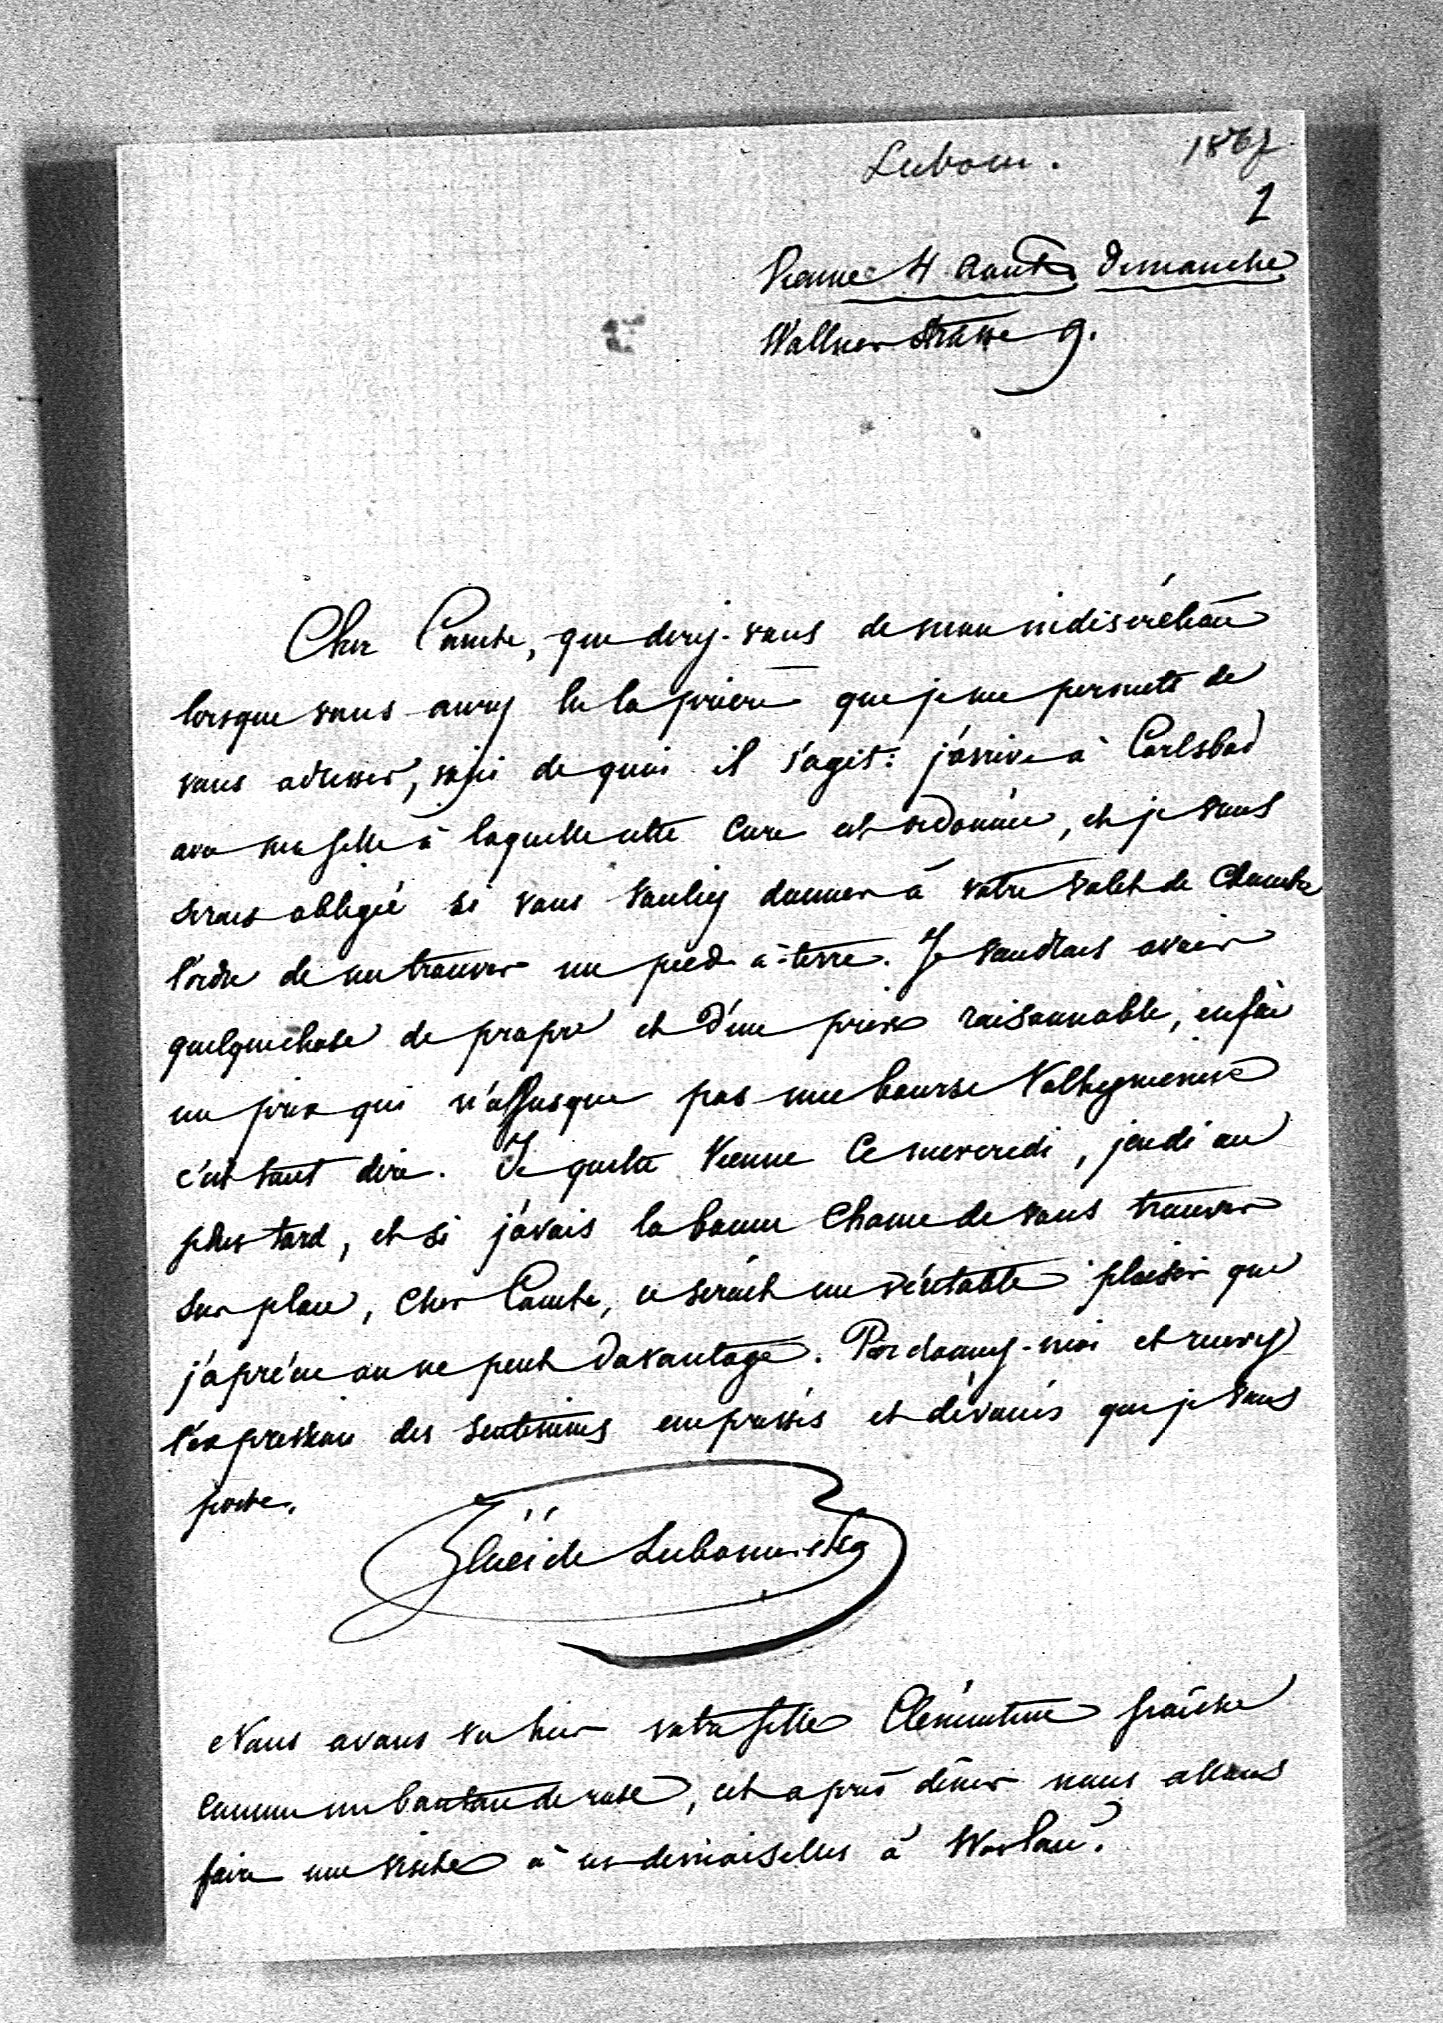 Lubom.
1867
1
Vienne 4 Août Dimanche
Wallner Strasse 9.
Cher Comte, que direz-vous de mon indiscrétion
lorsque vous aurez lu la prière que je me permets de
vous adresser, voici de quoi il s'agit: j'arrive à Carlsbad
avec ma fille à laquelle cette cure est ordonnée, et je vous
serais obligée si vous vouliez donner à votre valet de chambre
l'ordre de me trouver un pied-à-terre. Je voudrais avoir
quelque chose de propre et d'un prix raisonnable, enfin
un prix qui n'offusque pas une bourse Volhynienne
c'est tout dire. Je quitte Vienne ce mercredi, jeudi au
plus tard, et si j'avais la bonne chance de vous trouver
sur place, cher Comte, ce serait un véritable plaisir que
j'apprécie on ne peut davantage. Pardonnez-moi et
l'expression des sentimens empressés et dévoués que je vous
porte.
Lubomirska
Nous avons vu hier votre fille Clémentine fraîche
comme un bouton de rose, cet après dîner nous allons
faire une visite à ces demoiselles à